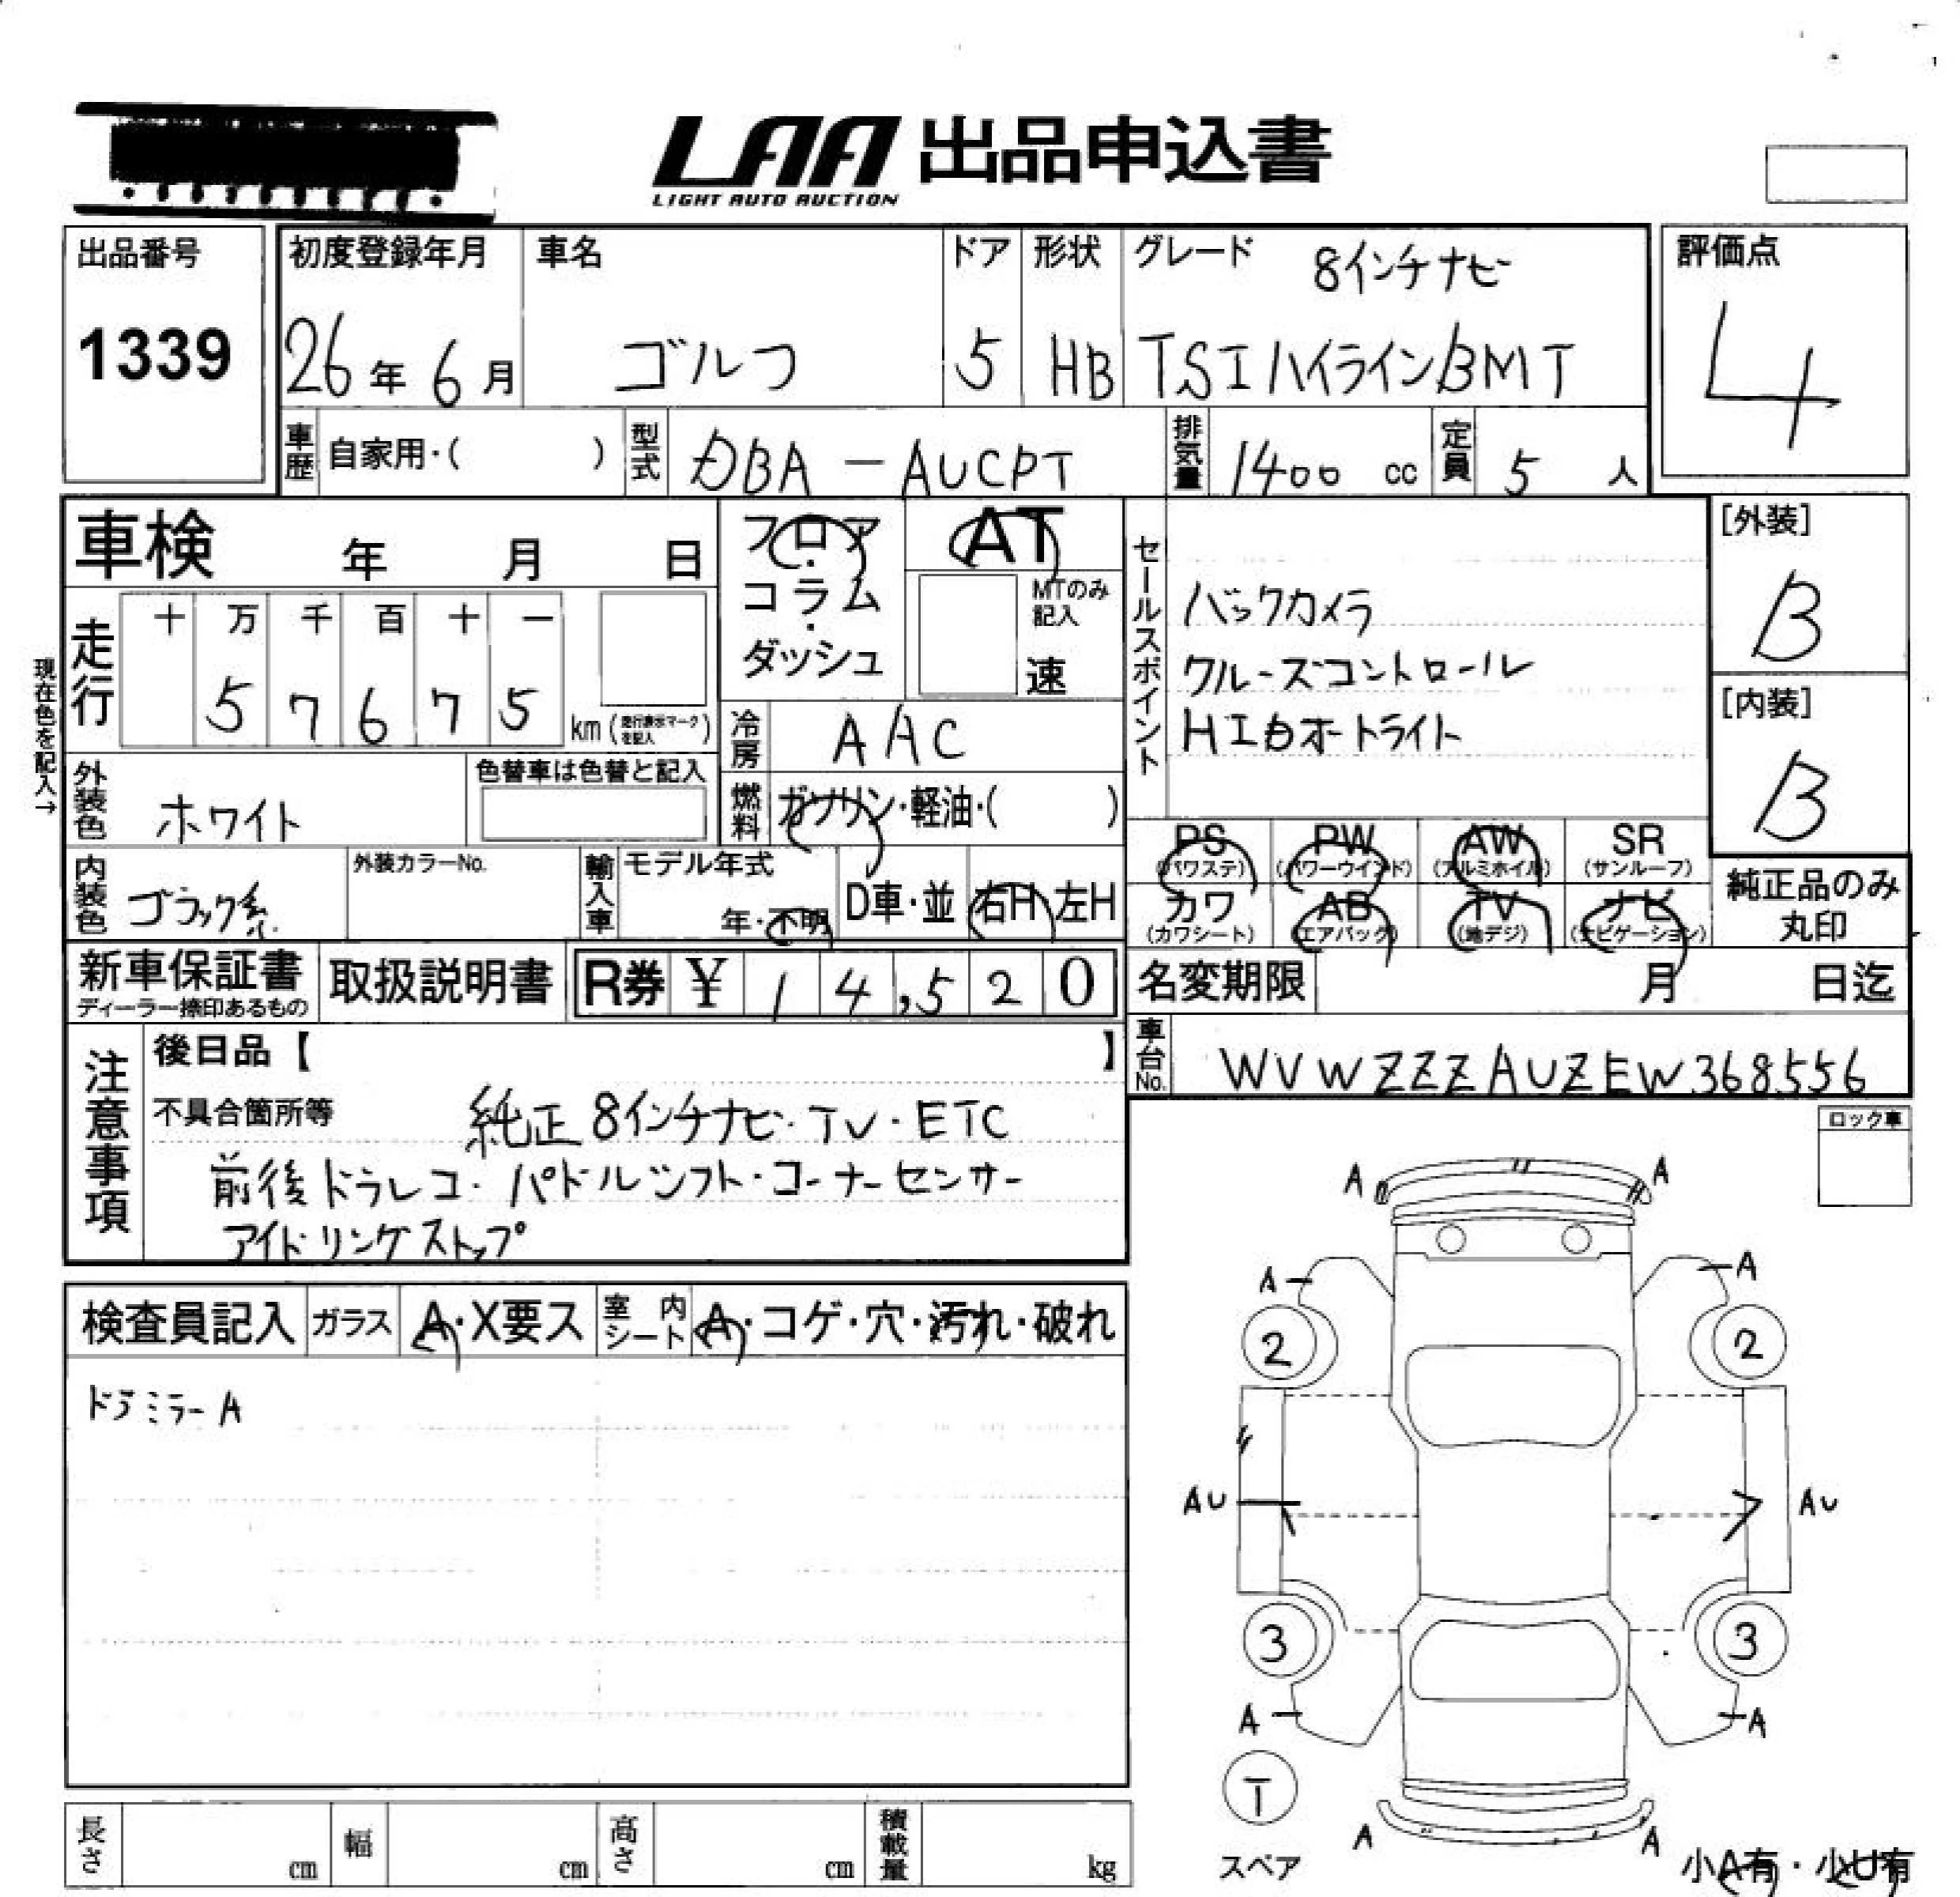 LAA 出品申込書
LIGHT AUTO AUCTION
出品番号
1339
初度登録年月
26年6月
車名
ゴルフ
ドア
5
形状
HB
グレード
8インチナビ
TSIハイラインBMT
評価点
4
車歴 自家用・( )
型式 DBA-AUCPT
排気量 1400 cc
定員 5 人
車検 年 月 日
フロア・コラム・ダッシュ
AT
MTのみ記入
速
セールスポイント
バックカメラ
クルーズコントロール
HIDオートライト
[外装]
B
[内装]
B
現在色を記入→
走行
十 万 千 百 十 一
5 7 6 7 5
km (走行表示マークを記入)
冷房 AAC
燃料 ガソリン・軽油・( )
外装色 ホワイト
色替車は色替と記入
内装色 ブラック系
外装カラーNo.
輸入車 モデル年式
年・不明
D車・並
右H 左H
PS
(パワステ)
PW
(パワーウインド)
AW
(アルミホイル)
SR
(サンルーフ)
カワ
(カワシート)
AB
(エアバック)
TV
(地デジ)
ナビ
(ナビゲーション)
純正品のみ
丸印
新車保証書
ディーラー捺印あるもの
取扱説明書
R券 ¥ 14,520
名変期限 月 日迄
車台No. WVWZZZAUZEW368556
注意事項
後日品【 】
不具合箇所等
純正8インチナビ・TV・ETC
前後ドラレコ・パドルシフト・コーナーセンサー
アイドリングストップ
検査員記入 ガラス A・X要ス 室内シート A・コゲ・穴・汚れ・破れ
ドアミラーA
ロック車
A A
A A
2 2
AU AU
3 3
A A
T
スペア
A A
小A有・小U有
長さ cm 幅 cm 高さ cm 積載量 kg